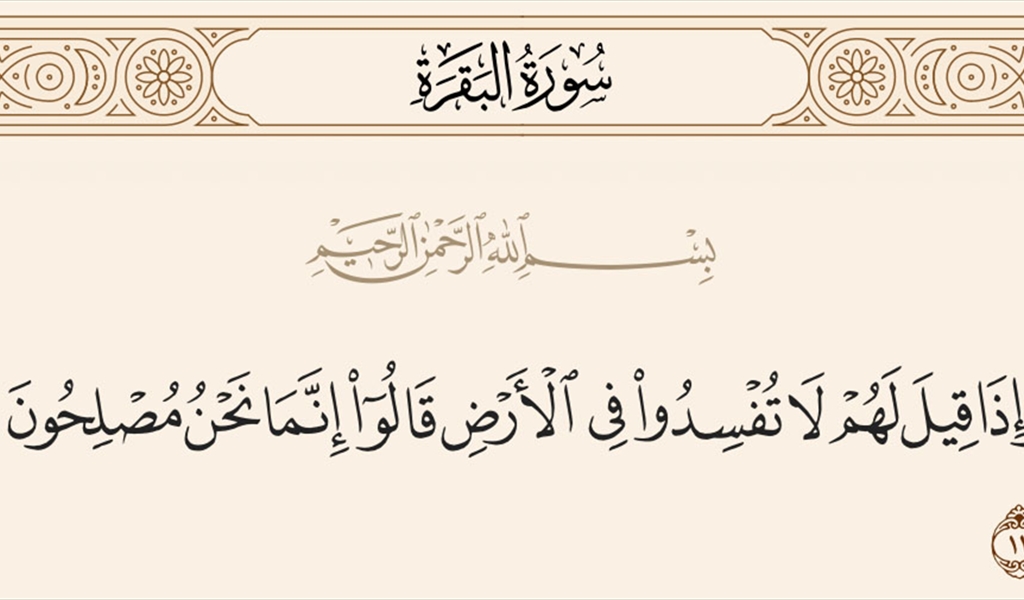 سُورَةُ البَقَرَةِ
بِسْمِ ٱللَّهِ ٱلرَّحْمَٰنِ ٱلرَّحِيمِ
إِذَا قِيلَ لَهُمْ لَا تُفْسِدُوا۟ فِى ٱلْأَرْضِ قَالُوٓا۟ إِنَّمَا نَحْنُ مُصْلِحُونَ
١١